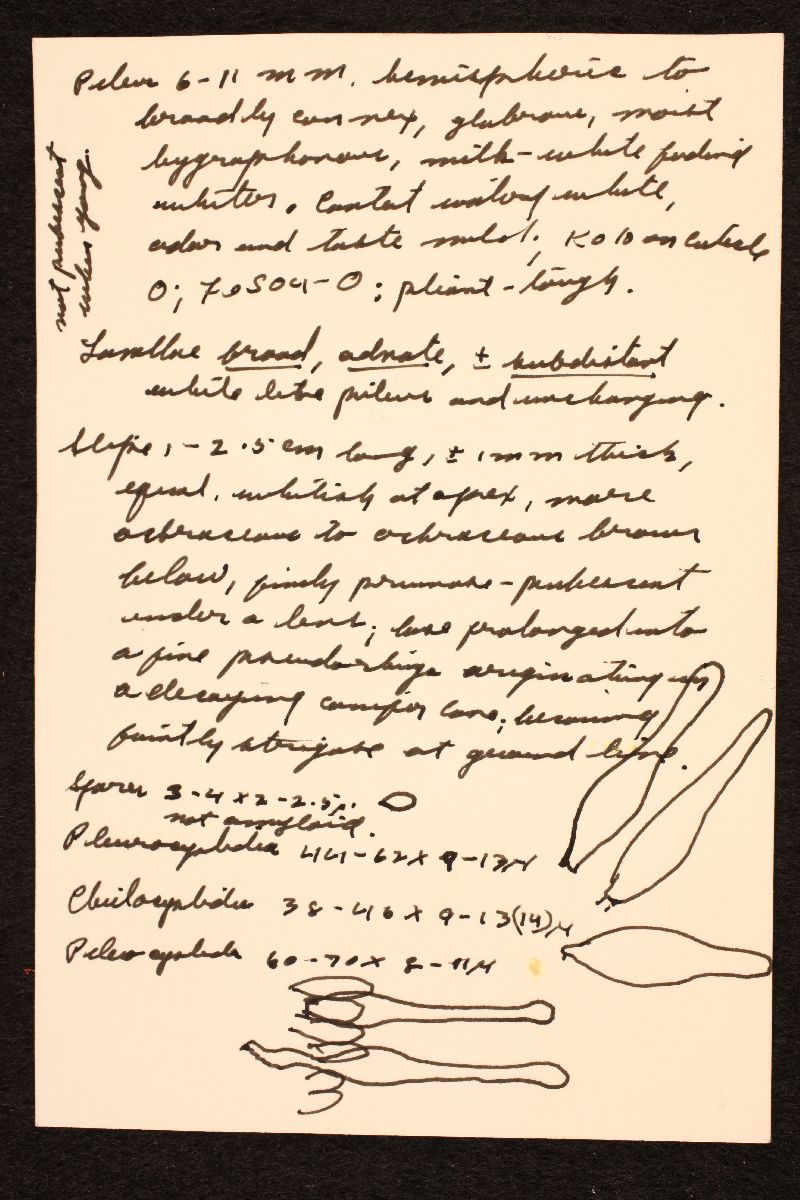 Pileus 6-11 mm. hemispheric to
broadly convex, glabrous, moist
hygrophanous, milk-white fading
whiter. Context watery white,
odor and taste mild; KOH on cuticle
O; FeSO4-O; pliant-tough.
not pubescent
when young.
Lamellae broad, adnate, ± subdistant
white like pileus and unchanging.
Stipe 1-2.5 cm long, ± 1mm thick,
equal, whitish at apex, more
ochraceous to ochraceous brown
below, finely pruinose-pubescent
under a lens; base prolonged into
a fine pseudorhiza originating in
a decaying conifer cone; becoming
faintly strigose at ground line.
Spores 3-4 x 2-2.5µ.
not amyloid.
Pleurocystidia 44-62 x 9-13µ
Cheilocystidia 38-46 x 9-13(14)µ
Pileocystidia 60-70 x 8-11µ